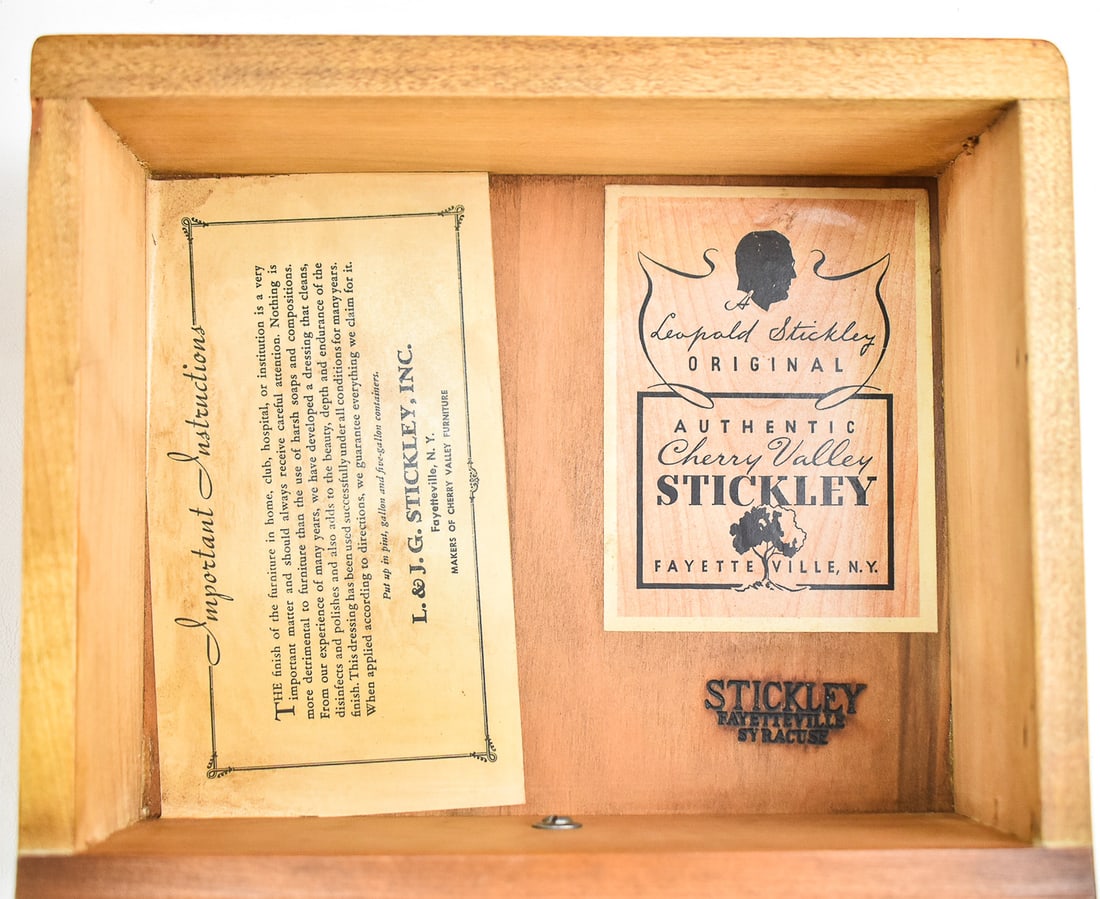 Important Instructions
THE finish of the furniture in home, club, hospital, or institution is a very
important matter and should always receive careful attention. Nothing is
more detrimental to furniture than the use of harsh soaps and compositions.
From our experience of many years, we have developed a dressing that cleans,
disinfects and polishes and also adds to the beauty, depth and endurance of the
finish. This dressing has been used successfully under all conditions for many years.
When applied according to directions, we guarantee everything we claim for it.
Put up in pint, gallon and five-gallon containers.
L. & J. G. STICKLEY, INC.
Fayetteville, N. Y.
MAKERS OF CHERRY VALLEY FURNITURE
A
Leopold Stickley
ORIGINAL
AUTHENTIC
Cherry Valley
STICKLEY
FAYETTEVILLE, N.Y.
STICKLEY
FAYETTEVILLE
SYRACUSE